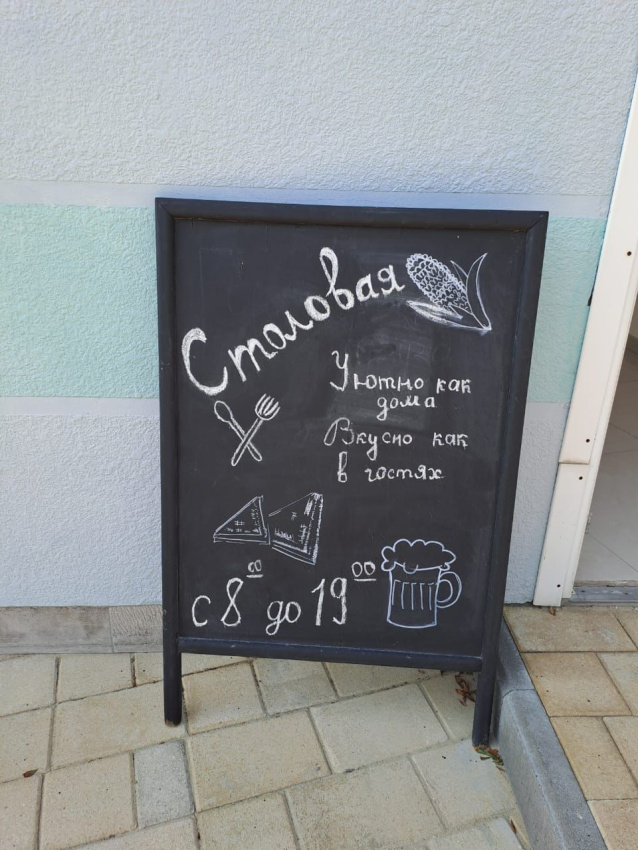 Столовая
Уютно как
дома
Вкусно как
в гостях
с 8⁰⁰ до 19⁰⁰